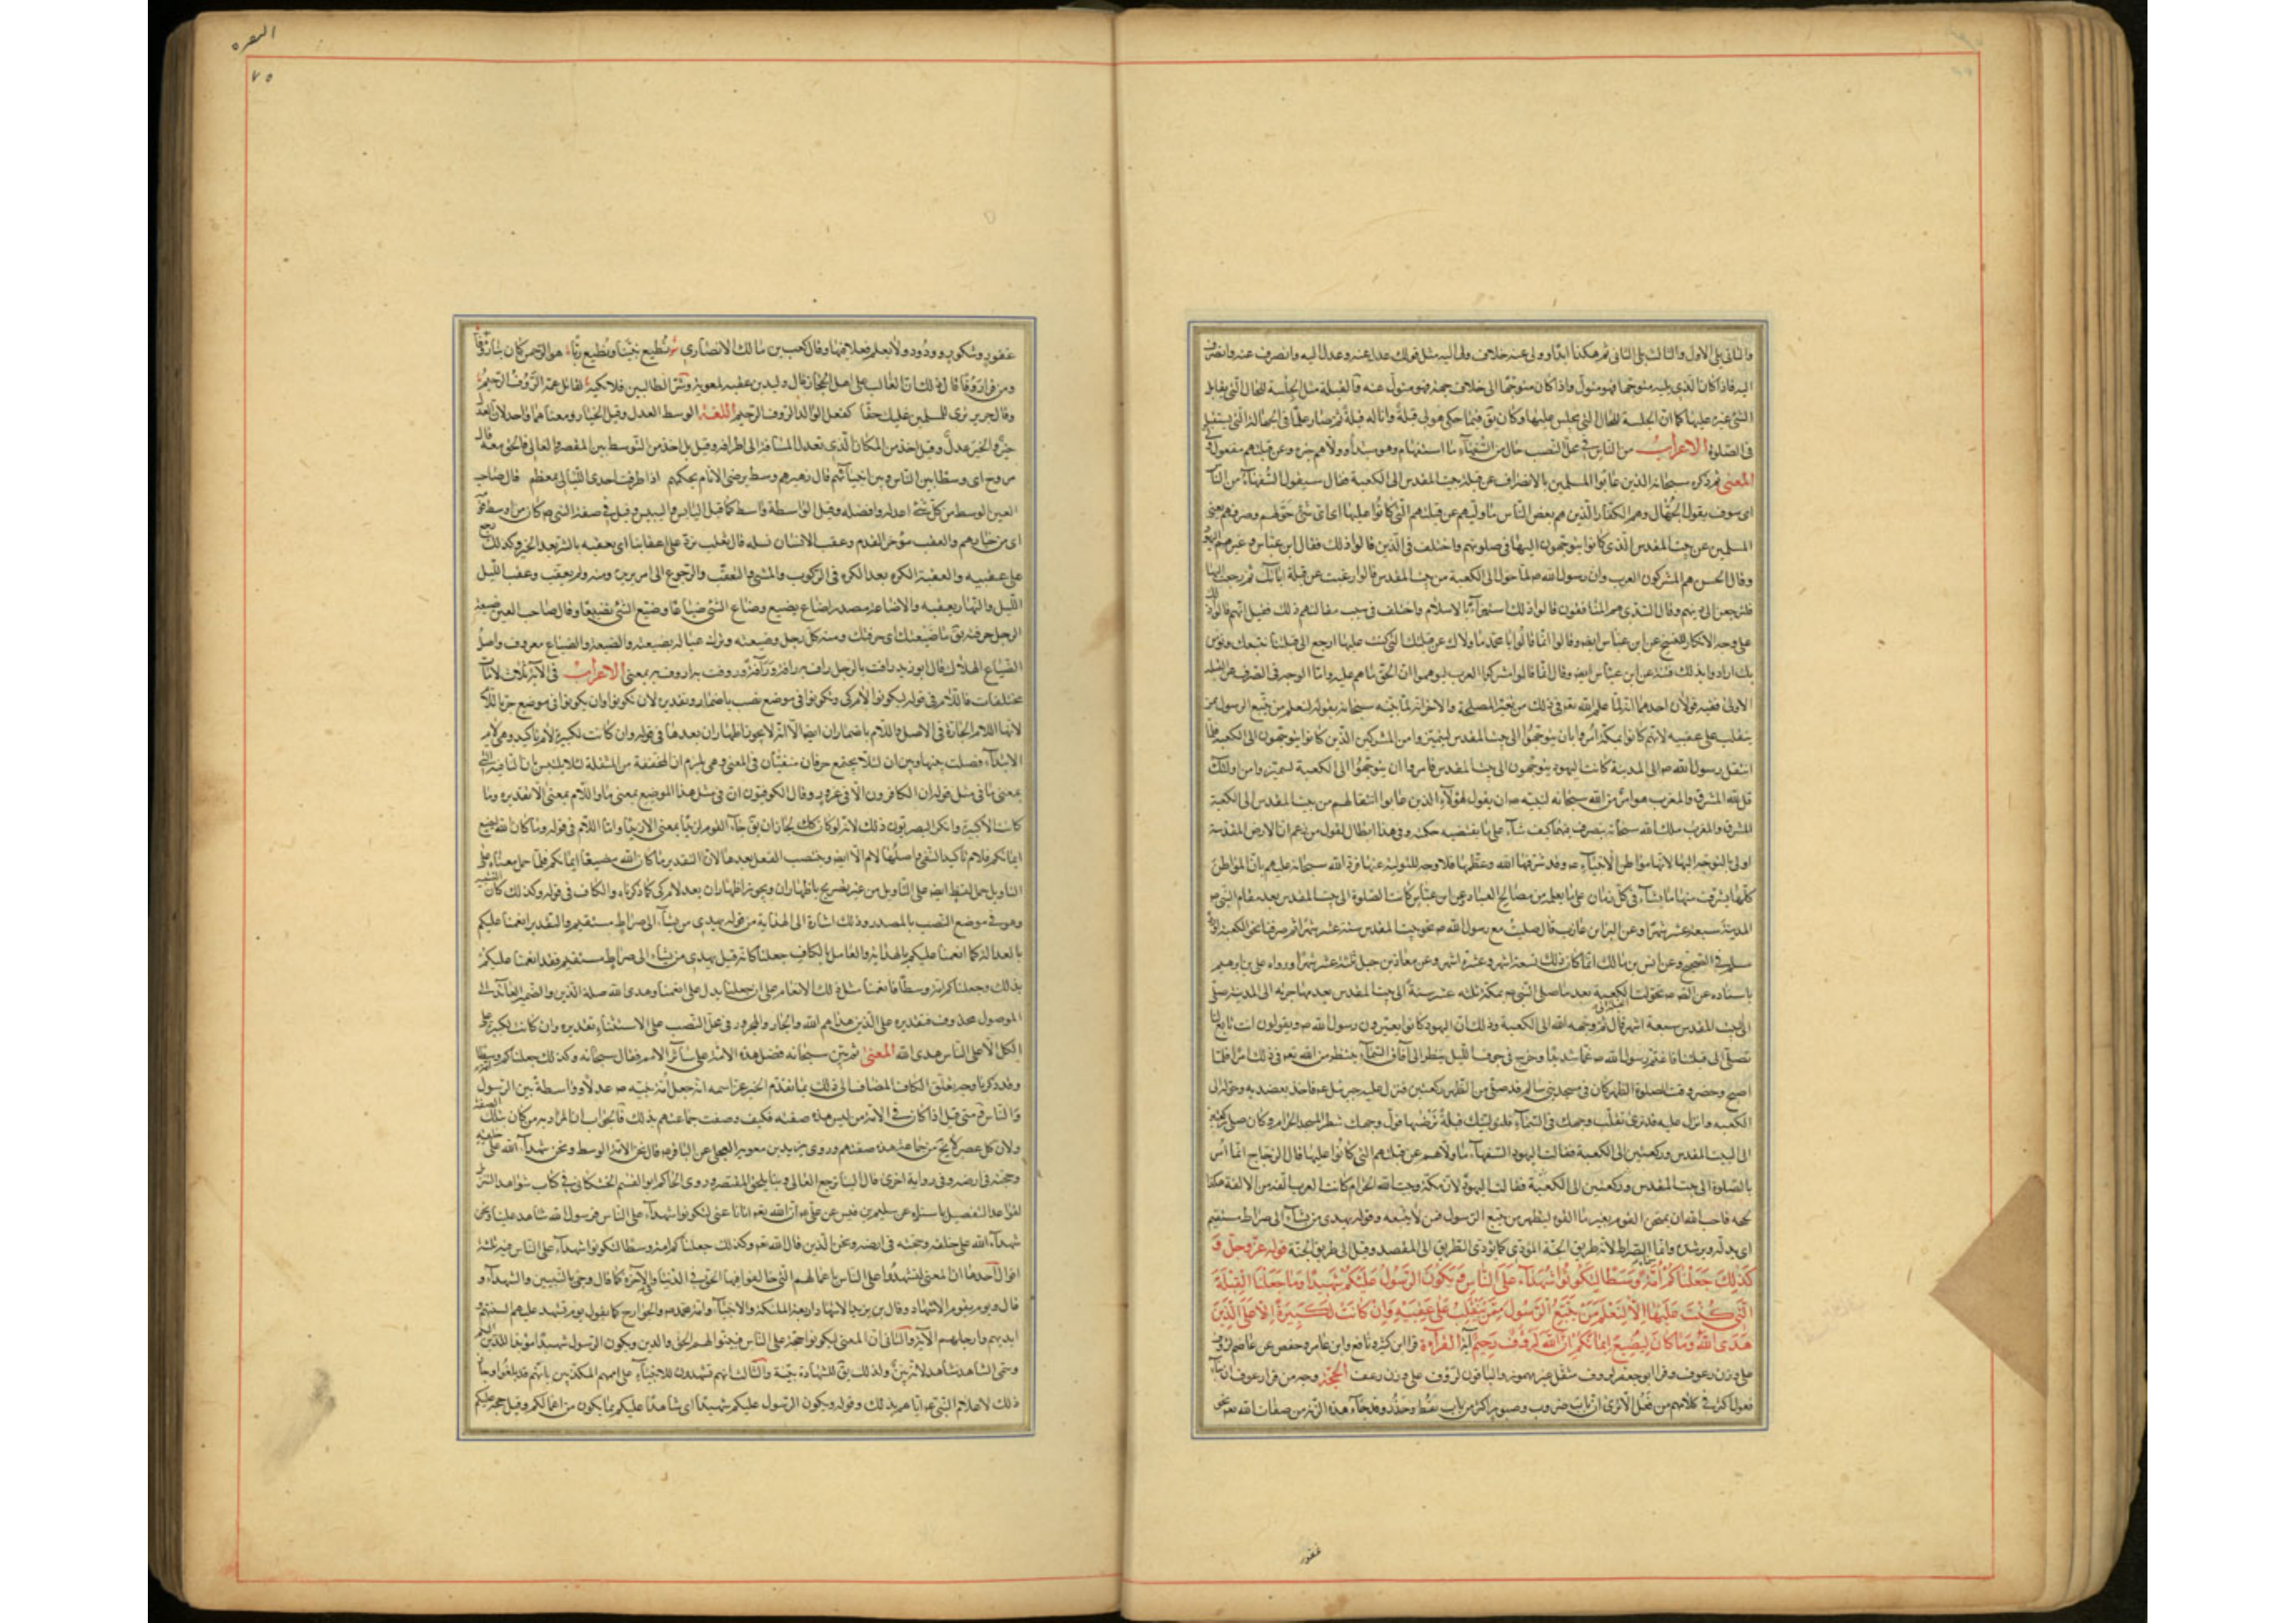 والثاني يلي الاول والثالث يلي الثاني ثم هكذا ابدا وولى عنه خلاف ولى اليه مثل قولك عدل عنه وعدل اليه وانصرف عنه وانصرف
اليه فاذا كان الذي يليه متوجها فهو متول واذا كان متوجها الى خلاف جهته فهو متول عنه والقبلة مثل الجلسة للحال التي يقابل
الشئ غيره عليها كما ان الجلسة للحال التي يجلس عليها وكان يق فيما حكي هو لي قبلة وانا له قبلة ثم صار علما في الجهة التي يستقبل
في الصلوة الاعراب من الناس في محل النصب حال من السفهاء ما استفهام وهو مبتدأ وولاهم خبره وعن قبلتهم مفعول
المعنى ثم ذكر سبحانه الذين عابوا المسلمين بالانصراف عن قبلة بيت المقدس الى الكعبة فقال سيقول السفهاء من الناس
اي سوف يقول الجهال وهم الكفار الذين هم بعض الناس ما وليهم عن قبلتهم التي كانوا عليها اي اي شئ حولهم وصرفهم يعني
المسلمين عن بيت المقدس الذي كانوا يتوجهون اليها في صلوتهم واختلف في الذين قالوا ذلك فقال ابن عباس وغيره هم اليهود
وقال الحسن هم المشركون العرب وان رسول الله ص لما حول الى الكعبة من بيت المقدس قالوا رغبت عن قبلة ابائك ثم رجعت اليها
فلترجعن الى دينهم وقال السدي هم المنافقون قالوا ذلك استهزآء بالاسلام واختلف في سبب مقالتهم ذلك فقيل انهم قالوا ذلك
على وجه الانكار للنسخ عن ابن عباس ايضا وقالوا انما قالوا يا محمد ما ولاك عن قبلتك التي كنت عليها ارجع الى قبلتنا نتبعك ونؤمن
بك ارادوا بذلك فتنته عن ابن عباس ايضا وقال انما قالوا مشركوا العرب ليوهموا ان الحق ما هم عليه واما الوجه في الصرف عن القبلة
الاولى ففيه قولان احدهما انه لما علم الله تعالى في ذلك من تغير المصلحة والاخر انه لما بينه سبحانه بقوله لنعلم من يتبع الرسول ممن
ينقلب على عقبيه لانهم كانوا بمكة امروا بان يتوجهوا الى بيت المقدس ليتميزوا من المشركين الذين كانوا يتوجهون الى الكعبة فلما
انتقل رسول الله ص الى المدينة كانت اليهود يتوجهون الى بيت المقدس فامروا ان يتوجهوا الى الكعبة ليتميزوا من اولئك
قل لله المشرق والمغرب هو امر من الله سبحانه لنبيه ص ان يقول لهؤلاء الذين عابوا انتقالهم من بيت المقدس الى الكعبة
المشرق والمغرب ملك لله سبحانه يتصرف فيهما كيف شاء على ما تقتضيه حكمته وفي هذا ابطال لقول من زعم ان الارض المقدسة
اولى بالتوجه اليها لانها مواطن الانبياء ع وقد شرفها الله وعظمها فلا وجه للتولية عنها فرد الله سبحانه عليهم بان المواطن
كلها لله يشرف منها ما يشاء في كل زمان على ما يعلمه من مصالح العباد وعن ابن عباس كانت الصلوة الى بيت المقدس بعد مقام النبي ص
المدينة سبعة عشر شهرا وعن البراء بن عازب قال صليت مع رسول الله ص نحو بيت المقدس ستة عشر شهرا ثم صرفنا نحو الكعبة اورده
مسلم في الصحيح وعن انس بن مالك انما كان ذلك تسعة اشهر وعشرة اشهر وعن معاذ بن جبل ثلثة عشر شهرا ورواه علي بن ابرهيم
باسناده عن الصادق ع تحولت الكعبة بعد ما صلى النبي ص بمكة ثلثه عشر سنة الى بيت المقدس بعد مهاجرته الى المدينة صلى
الى بيت المقدس سبعة اشهر قال ثم وجهه الله الى الكعبة وذلك ان اليهود كانوا يعيرون رسول الله ص ويقولون انت تابع لنا
تصلي الى قبلتنا فاغتم رسول الله ص غما شديدا وخرج في جوف الليل ينظر الى آفاق السماء ينتظر من الله تعالى في ذلك امرا فلما
اصبح وحضر وقت الصلوة الظهر كان في مسجد بني سالم قد صلى من الظهر ركعتين فنزل عليه جبرئيل ع فاخذ بعضديه وحوله الى
الكعبه وانزل عليه قد نرى تقلب وجهك في السماء فلنولينك قبلة ترضيها فول وجهك شطر المسجد الحرام وكان صلى ركعتين
الى البيت المقدس وركعتين الى الكعبة فقالت اليهود السفهاء ما ولاهم عن قبلتهم التي كانوا عليها قال الزجاج انما امر
بالصلوة الى بيت المقدس وركعتين الى الكعبة فقالت اليهود لان مكة وبيت الله الحرام كانت العرب آلفة من الالفة هكذا
بحجه فاحب الله ان يمتحن القوم بغير ما الفوه ليظهر من يتبع الرسول ممن لا يتبعه وقوله يهدي من يشاء الى صراط مستقيم
اي يدله ويرشده وانما الصراط لانه طريق الجنة المؤدي كما يؤدي الطريق الى المقصد وقيل الى طريق الجنة قوله عز وجل و
كذلك جعلناكم امة وسطا لتكونوا شهداء على الناس ويكون الرسول عليكم شهيدا وما جعلنا القبلة
التي كنت عليها الا لنعلم من يتبع الرسول ممن ينقلب على عقبيه وان كانت لكبيرة الا على الذين
هدى الله وما كان الله ليضيع ايمانكم ان الله لرؤف رحيم آية القراءة قرا ابن كثير ونافع وابن عامر وحفص عن عاصم لرؤف
على وزن رعوف وقرا ابو جعفر لرووف مثقل غير مهموز والباقون لرؤف على وزن رعف الحجة وجه من قرا رعوف ان بناء
فعول اكثر في كلامهم من فعل الا ترى ان باب ضروب وصبور اكثر من باب يقظ وحذر وقد جاء هذه الزنة من صفات الله تعالى نحو
غفور
البقره
٧٥
غفور وشكور وودود ولا نعلم فعلا فيها وقال كعب بن مالك الانصاري شعر نطيع نبينا ونطيع ربا هو الرحمن كان بنا رؤفا
ومن قرا رؤفا قال ان ذلك الغالب على اهل الحجاز قال وليد بن عقبه لمعوية وشر الطالبين فلا تكنه لقاتل عمه الرؤف الرحيم
وقال جرير ترى للمسلمين عليك حقا كفعل الوالد الرؤف الرحيم اللغة الوسط العدل وقيل الخيار ومعناهما واحد لان العدل
خير والخير عدل وقيل اخذ من المكان الذي تعدل المسافة الى اطرافه وقيل بل اخذ من التوسط بين المقصر والغالي فالحق معه قال
مورج اي وسطا بين الناس وبين انبيائهم قال زهير هم وسط يرضى الانام بحكمهم اذا طرقت احدى الليالي بمعظم قال صاحب
العين الوسط من كل شئ اعدله وافضله وقيل الواسطة واسط كما قيل اليابس واليبس وقيل في صفة النبي ص كان من اوسط قومه
اي من خيارهم والعقب مؤخر القدم وعقب الانسان نسله قال ثعلب نرد على اعقابنا اي نعقب بالشر بعد الخير وكذلك رجع
على عقبيه والعقبة الكرة بعد الكره في الركوب والمشي والتعقب والرجوع الى امر يريده ومنه ولم يعقب وعقب الليل
الليل والنهار يعقبه والاضاعة مصدر اضاع يضيع وضاع الشئ ضياعا وضيع الشئ تضييعا وقال صاحب العين ضيعة
الرجل حرفته يق ما ضيعتك اي حرفتك ومنه كل رجل وضيعته وترك عياله بضيعة والضيعة والضياع معروف واصل
الضياع الهلاك قال ابو زيد رافت بالرجل ارأف به رأفة ورآفة ورؤفت به ارؤف به بمعنى الاعراب في الآية ثلاث لامات
مختلفات فاللام في قوله ليكونوا لام كي وتكونوا في موضع نصب باضمار وتقديره لان تكونوا وان يكونوا في موضع جر باللام
لانها اللام الجارة في الاصل واللام باضمار ان ايضا الا انه لا يجوز اظهار ان بعدها في قوله وان كانت لكبيرة لام تاكيد وهي لام
الابتداء فصلت بينها وبين ان لئلا يجتمع حرفان متفقان في المعنى وهي يلزم ان المخففة من المثقلة لئلا يلتبس بان النافية التي
بمعنى ما في مثل قوله ان الكافرون الا في غرور وقال الكوفيون ان في مثل هذا الموضع بمعنى ما واللام بمعنى الا تقديره وما
كانت الا كبيرة وانكر البصريون ذلك لانه لو كان كك لجاز ان يق جاء القوم لزيدا بمعنى الا زيدا واما اللام في قوله وما كان الله ليضيع
ايمانكم فلام تأكيد النفي واصلها لام الاضافة وينصب الفعل بعدها لان التقدير ما كان الله مضيعا ايمانكم فلما حمل معناه على
التاويل حمل لفظه ايضا على التاويل من غير تصريح باظهار ان ويجوز اظهار ان بعد لام كي كما ذكرناه والكاف في قوله وكذلك كاف التشبيه
وهو في موضع النصب بالمصدر وذلك اشارة الى الهداية من قوله يهدي من يشاء الى صراط مستقيم والتقدير انعمنا عليكم
بالعدالة كما انعمنا عليكم بالهداية والعامل بالكاف جعلنا كانه قيل يهدي من يشاء الى صراط مستقيم فقد انعمنا عليكم
بذلك وجعلناكم امة وسطا فانعمنا مثل ذلك الانعام على ان جعلنا يدل على انعمنا وهدى الله صلة الذين والضمير العائد الى
الموصول محذوف فتقديره على الذين هداهم الله والجار والمجرور في محل النصب على الاستثناء تقديره وان كانت لكبيرة على
الكل الا على الناس هدى الله المعنى ثم بين سبحانه فضل هذه الامة على سائر الامم فقال سبحانه وكذلك جعلناكم وسطا
وقد ذكرنا وجه تعلق الكاف المضاف الى ذلك بما تقدم اخبر عز اسمه انه جعل امة نبيه ص عدلا وواسطة بين الرسول
والناس ومتى قيل اذا كان في الامة من ليس هذه صفته فكيف وصفت جماعتهم بذلك فالجواب ان المراد به من كان بتلك الصفة
ولان كل عصر لا يخ من جماعة هذه صفتهم وروى بريد بن معوية العجلي عن الباقر ع قال نحن الامة الوسط ونحن شهداء الله على خلقه
وحجته في ارضه وفي رواية اخرى قال الينا يرجع الغالي وبنا يلحق المقصر وروى الحاكم ابو القسم الحسكاني في كتاب شواهد التنزيل
لقواعد التفضيل باسناده عن سليم بن قيس عن علي ع ان الله تعالى ايانا عنى لتكونوا شهداء على الناس فرسول الله شاهد علينا ونحن
شهداء الله على خلقه وحجته في ارضه ونحن الذين قال الله تعالى وكذلك جعلناكم امة وسطا لتكونوا شهداء على الناس فيه ثلثة
اقوال احدها ان المعنى لتشهدوا على الناس باعمالهم التي خالفوا فيها الحق في الدنيا والآخرة كما قال وجئ بالنبيين والشهداء و
قال ويوم يقوم الاشهاد وقال بن يزيد الاشهاد اربعة الملئكة والانبياء وامة محمد ص والجوارح كما يقول يوم تشهد عليهم السنتهم و
ايديهم وارجلهم الآية والثاني ان المعنى ليكونوا حجة على الناس فيبينوا لهم الحق والدين ويكون الرسول شهيدا مؤديا للدين اليهم
وسمي الشاهد شاهدا لانه يبين ولذلك يق للشهادة بينة والثالث انهم تشهدون للانبياء على اممهم المكذبين بانهم قد بلغوا وجاز
ذلك لاعلام النبي ص اياهم بذلك وقوله ويكون الرسول عليكم شهيدا اي شاهدا عليكم بما يكون من اعمالكم وقيل حجة عليكم